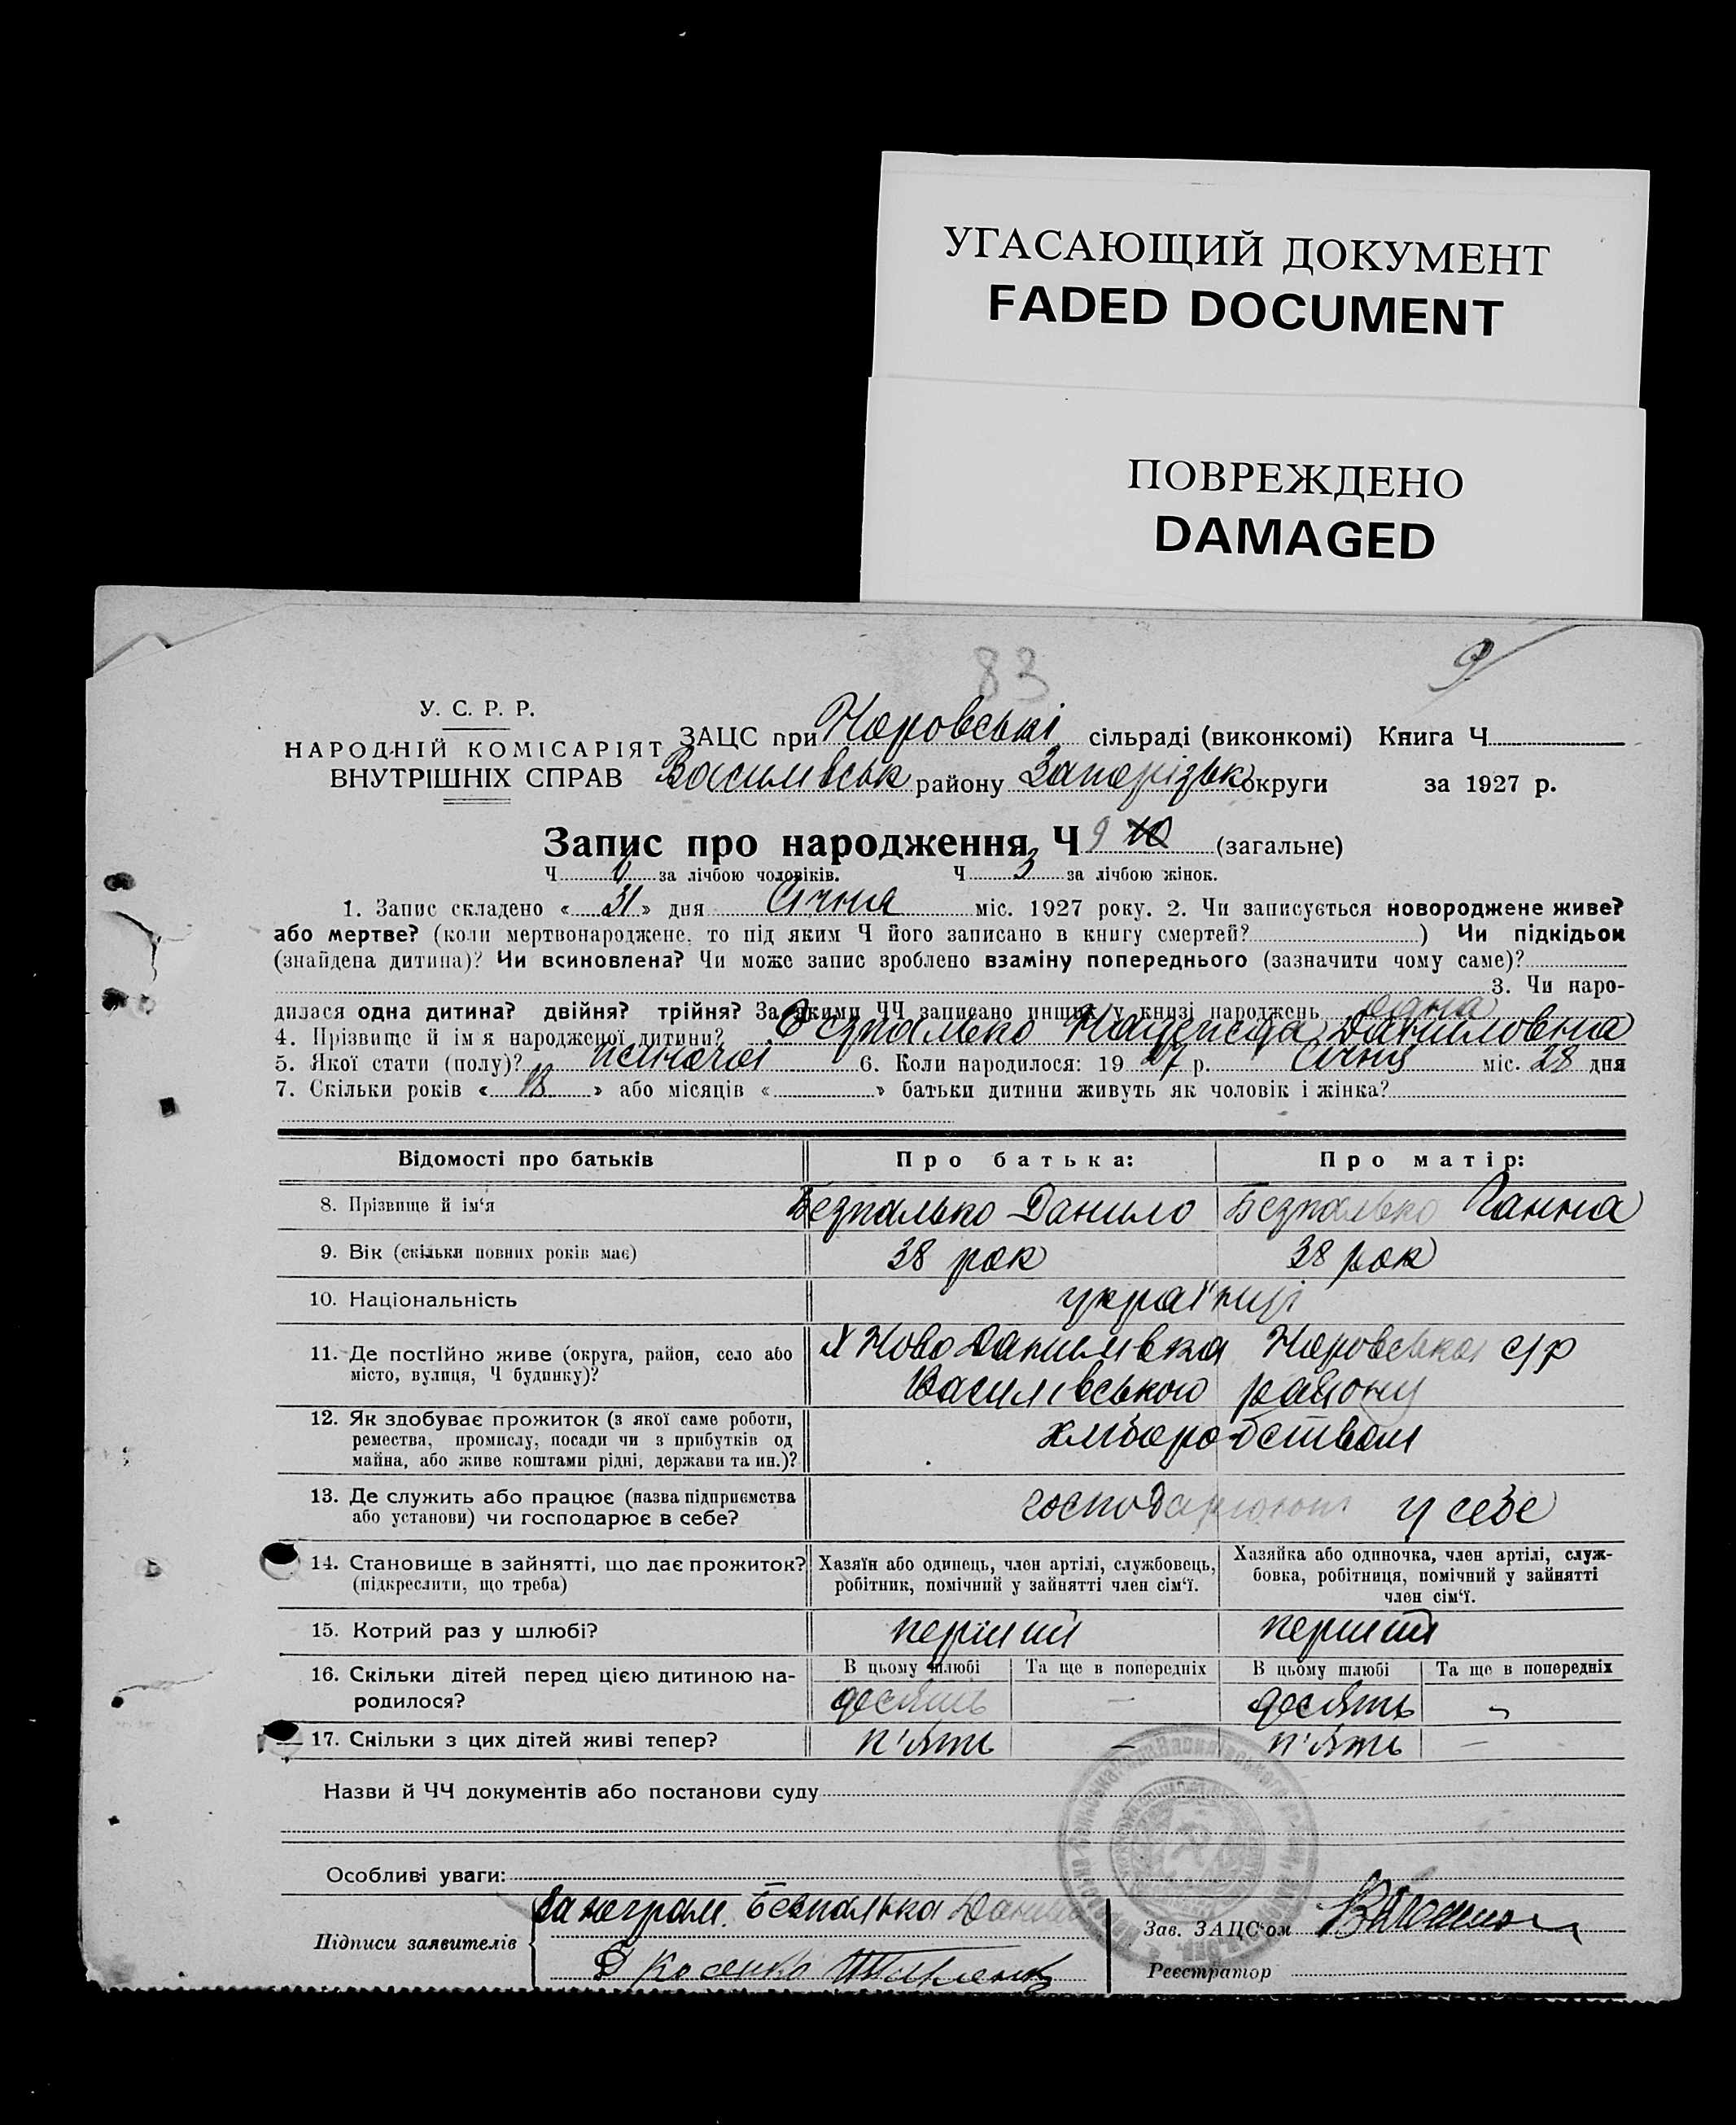 УГАСАЮЩИЙ ДОКУМЕНТ
FADED DOCUMENT
ПОВРЕЖДЕНО
DAMAGED
83
9
У. С. Р. Р.
НАРОДНІЙ КОМІСАРІЯТ
ВНУТРІШНІХ СПРАВ
ЗАЦС при сільраді (виконкомі) Книга Ч
Василівськ району Запорізьк округи за 1927 р.
Запис про народження Ч 9 (загальне)
Ч за лічбою чоловіків. Ч 3 за лічбою жінок.
1. Запис складено « 31 » дня Січня міс. 1927 року. 2. Чи записується новороджене живе?
або мертве? (коли мертвонароджене, то під яким Ч його записано в книгу смертей? ) Чи підкідьок
(знайдена дитина)? Чи всиновлена? Чи може запис зроблено взаміну попереднього (зазначити чому саме)?
3. Чи наро-
дилася одна дитина? двійня? трійня? За якими ЧЧ записано инших у книзі народжень одна
4. Прізвище й ім'я народженої дитини? Безпалько Надежда Даниловна
5. Якої стати (полу)? жіночої 6. Коли народилося: 19 27 р. Січня міс. 28 дня
7. Скільки років « 18 » або місяців « » батьки дитини живуть як чоловік і жінка?
Відомості про батьків Про батька: Про матір:
8. Прізвище й ім'я Безпалько Данило Безпалько Ганна
9. Вік (скільки повних років має) 38 рок 38 рок
10. Національність українці
11. Де постійно живе (округа, район, село або
місто, вулиця, Ч будинку)?
Х Ново Данилівка с/р
Василівського району
12. Як здобуває прожиток (з якої саме роботи,
ремества, промислу, посади чи з прибутків од
майна, або живе коштами рідні, держави та ин.)?
хліборобством
13. Де служить або працює (назва підприємства
або установи) чи господарює в себе?
господарюють у себе
14. Становище в зайнятті, що дає прожиток?
(підкреслити, що треба)
Хазяїн або одинець, член артілі, службовець,
робітник, помічний у зайнятті член сім'ї.
Хазяйка або одиночка, член артілі, служ-
бовка, робітниця, помічний у зайнятті
член сім'ї.
15. Котрий раз у шлюбі? перший перший
16. Скільки дітей перед цією дитиною на-
родилося?
В цьому шлюбі Та ще в попередніх В цьому шлюбі Та ще в попередніх
десять — десять —
17. Скільки з цих дітей живі тепер? п'ять — п'ять —
Назви й ЧЧ документів або постанови суду
Особливі уваги:
Підписи заявителів
За неграм. Безпалька Данила
Косенко
Зав. ЗАЦС'ом
Реєстратор